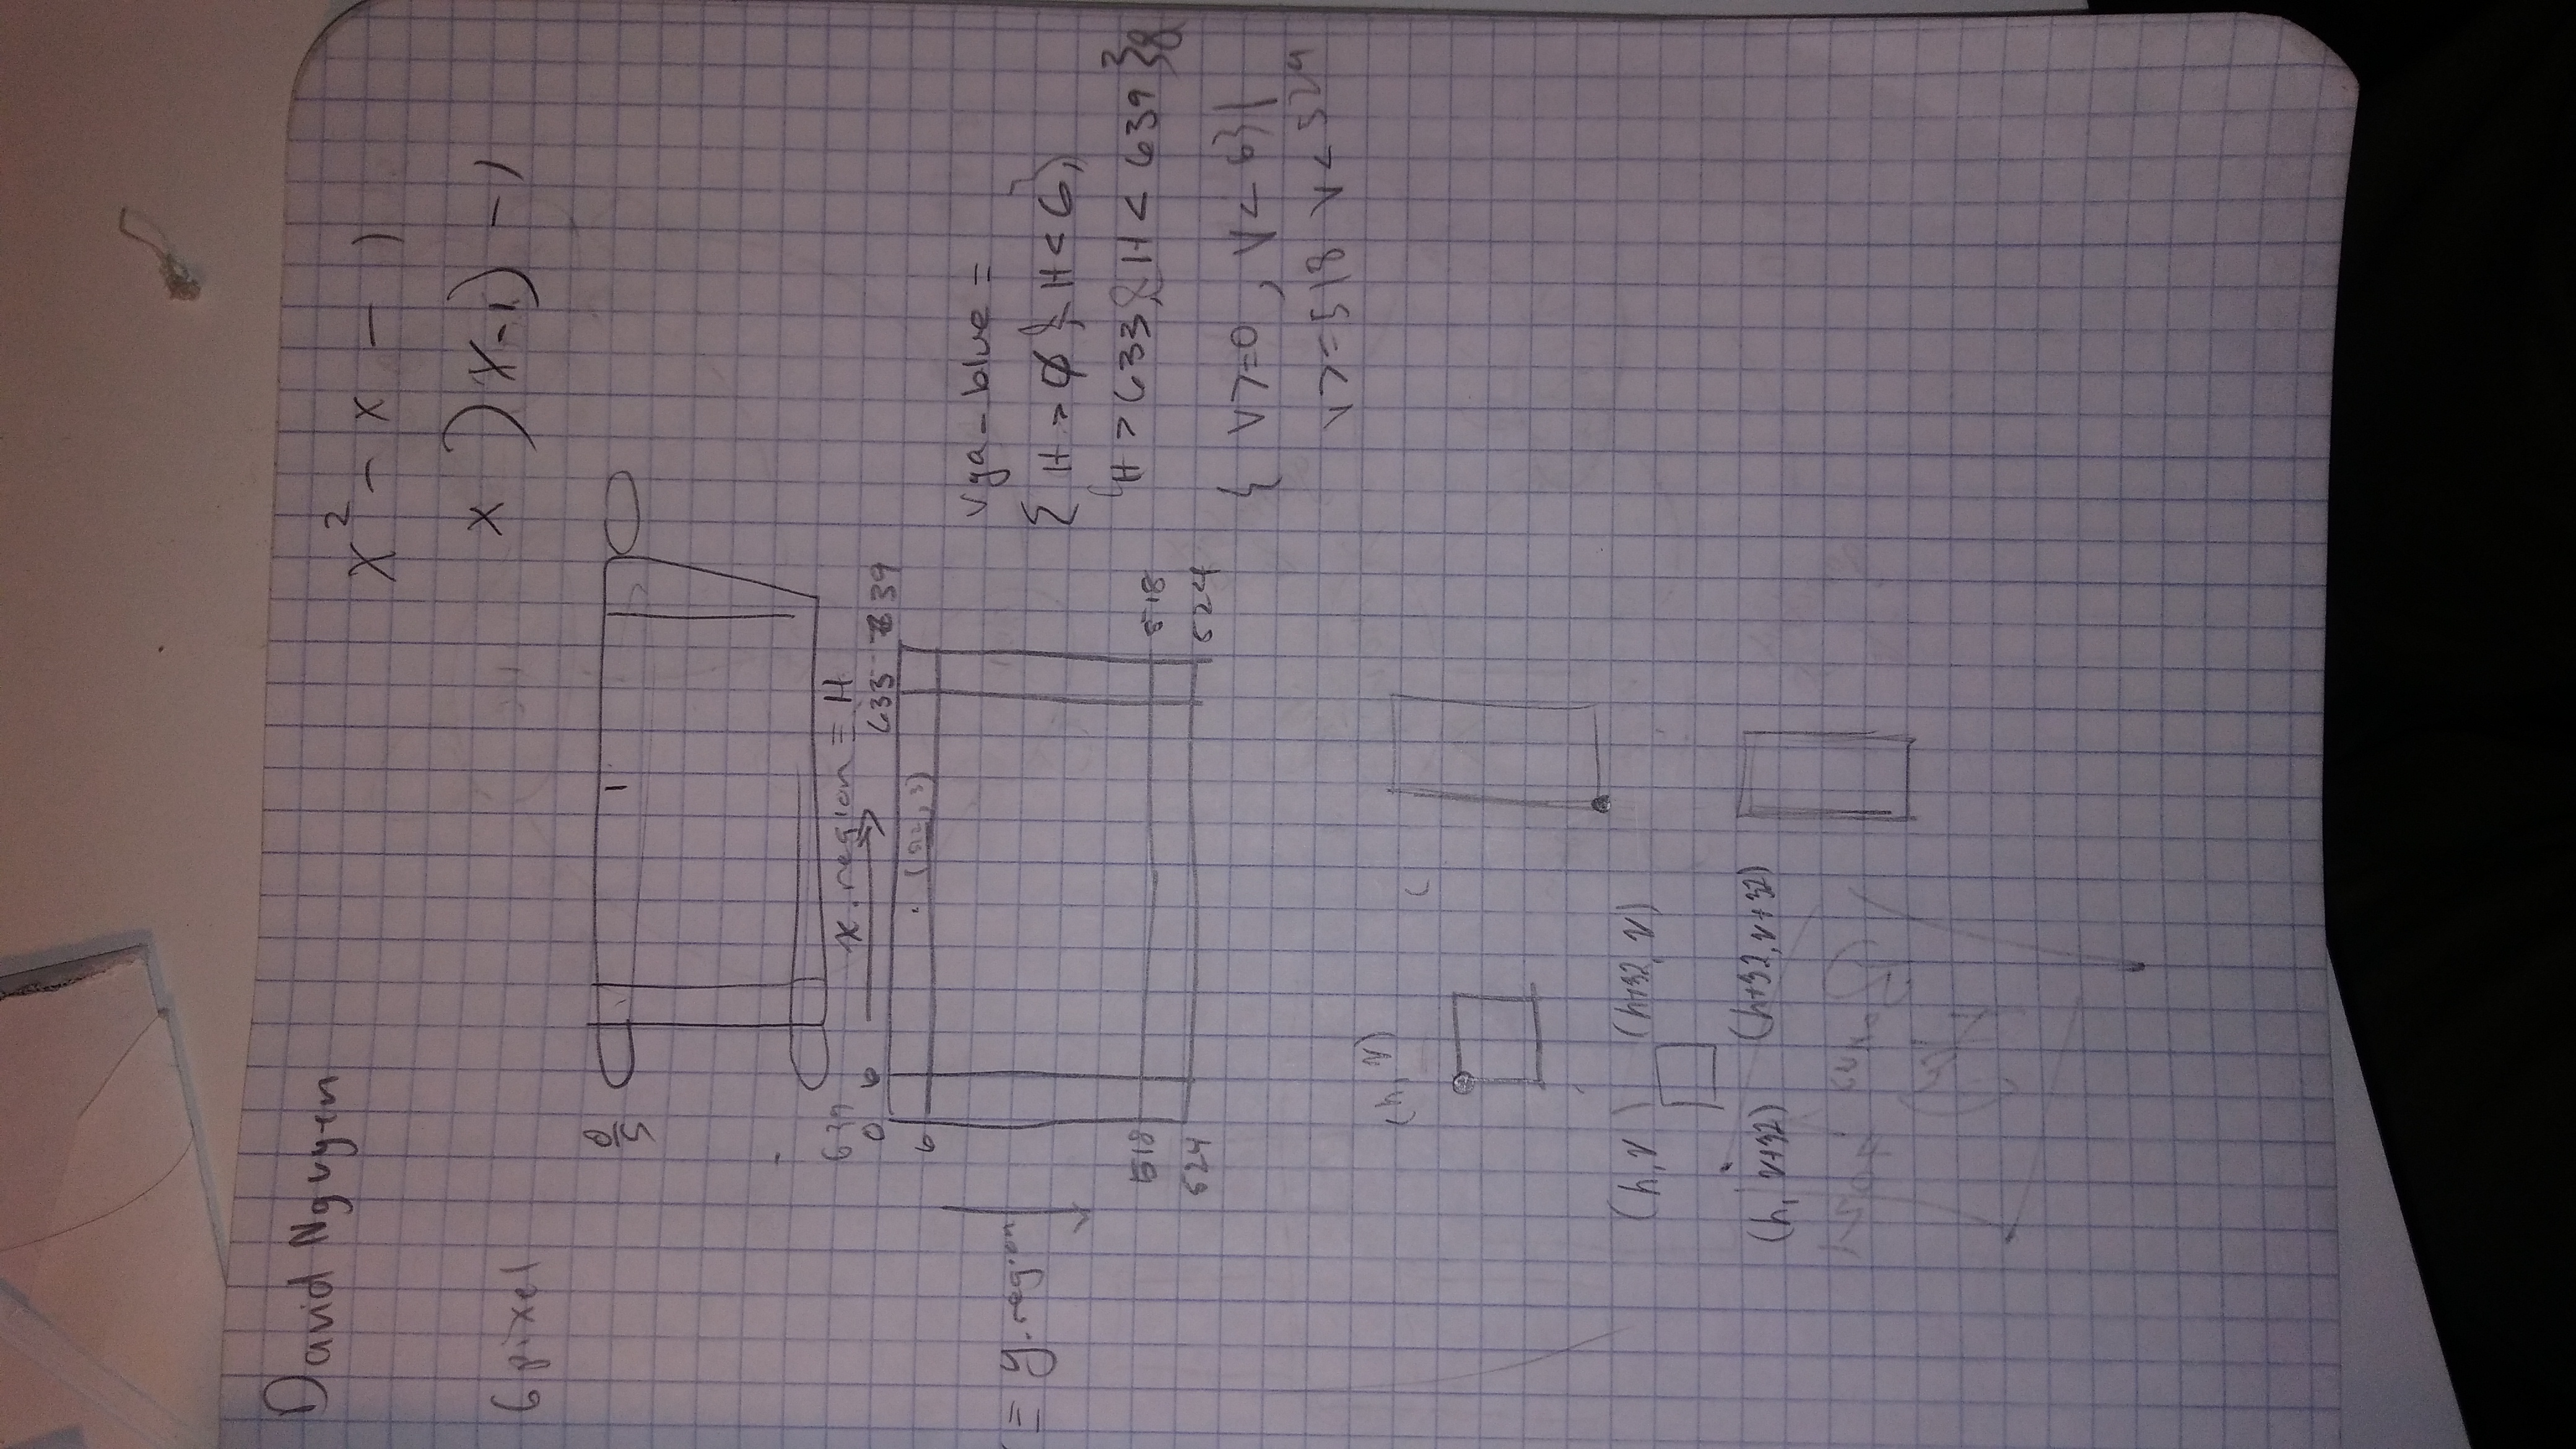 David Nguyen
x² - x - 1
x )x-1) - 1
6 pixel
0
5
639
x.region = H
0 6 633 639
6
= y.region
518 518
524 524
vga-blue =
{ H > 0 & H < 6,
H > 633, & H < 639 } &
{ V >= 0 , V < 6 } |
V >= 518 V < 524
(h, v)
(h, v ) (h+32, v)
(h, v+32) (h+32, v+32)